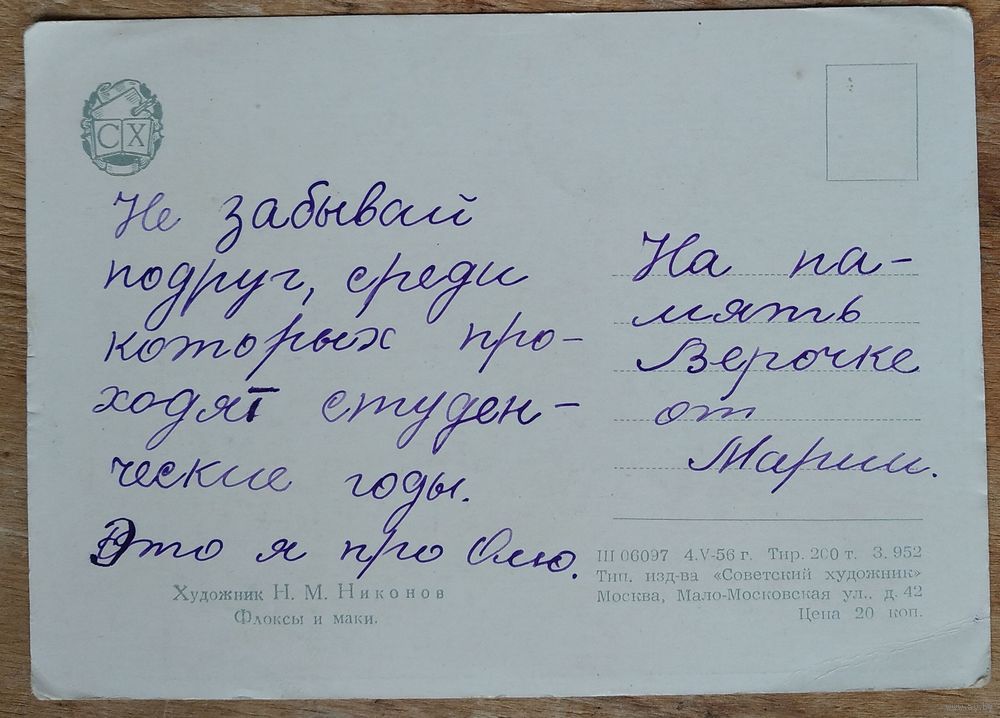 СХ
Не забывай
подруг, среди
которых про-
ходят студен-
ческие годы.
Это я про Олю.
На па-
мять
Верочке
от
Марии.
Художник Н. М. Никонов
Флоксы и маки.
Ш 06097 4.V-56 г. Тир. 200 т. З. 952
Тип. изд-ва «Советский художник»
Москва, Мало-Московская ул., д. 42
Цена 20 коп.